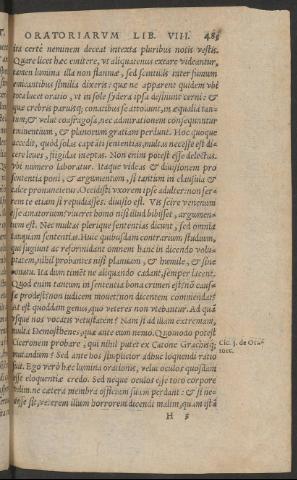 ORATORIARVM LIB. VIII. 485
ita certè neminem deceat intexta pluribus notis vestis.
Quare licet hæc enitere, vt aliquatenus extare videantur,
tamen lumina illa non flammæ, sed scintillis inter fumum
emicantibus similia dixeris: quæ ne apparent quidem vbi
tota lucet oratio, vt in sole sydera ipsa desinunt cerni: &
quæ crebris paruisq; conatibus se attolunt, inæqualia tan-
tum, & velut cofragosa, nec admirationem consequuntur
eminentium, & planorum gratiam perdunt. Hoc quoque
accedit, quòd solas captāti sententias, multas necesse est di-
cere leues, frigidas ineptas. Non enim potest esse delectus,
vbi numero laboratur. Itaque videas & diuisionem pro
sententia poni, & argumentum, si tantum in clausula &
calce pronuncietur. Occidisti vxorem ipse adulter: non fer-
rem te etiam si repudiasses. diuisio est. Vis scire venenum
esse amatorium? viueret homo nisi illud bibisset, argumen-
tum est. Nec multas plerique sententias dicunt, sed omnia
tanquam sententias. Huic quibusdam contrarium studium,
qui fugiunt ac reformidant omnem hanc in dicendo volu-
ptatem, nihil probantes nisi planum, & humile, & sine
conatu. Ita dum timēt ne aliquando cadant, semper iacent.
Quod enim tantum in sententia bona crimen est? nō cau-
se prodest? non iudicem mouet? non dicentem commendat?
At est quoddam genus, quo veteres non vtebantur. Ad quā
vsque nos vocatis vetustatem? Nam si ad illam extremam,
multa Demosthenes, quæ ante eum nemo. Quomodo potest
Ciceronem probare, qui nihil putet ex Catone Gracchisq;
mutandum? Sed ante hos simplicior adhuc loquendi ratio
fuit. Ego verò hæc lumina orationis, velut oculos quosdam
esse eloquentiæ credo. Sed neque oculos esse toto corpore
velim, ne cætera membra officium suum perdant: & si ne-
cesse sit, veterem illum horrorem dicendi malim, quam istā
Cic. j. de Ora-
tore.
H 5